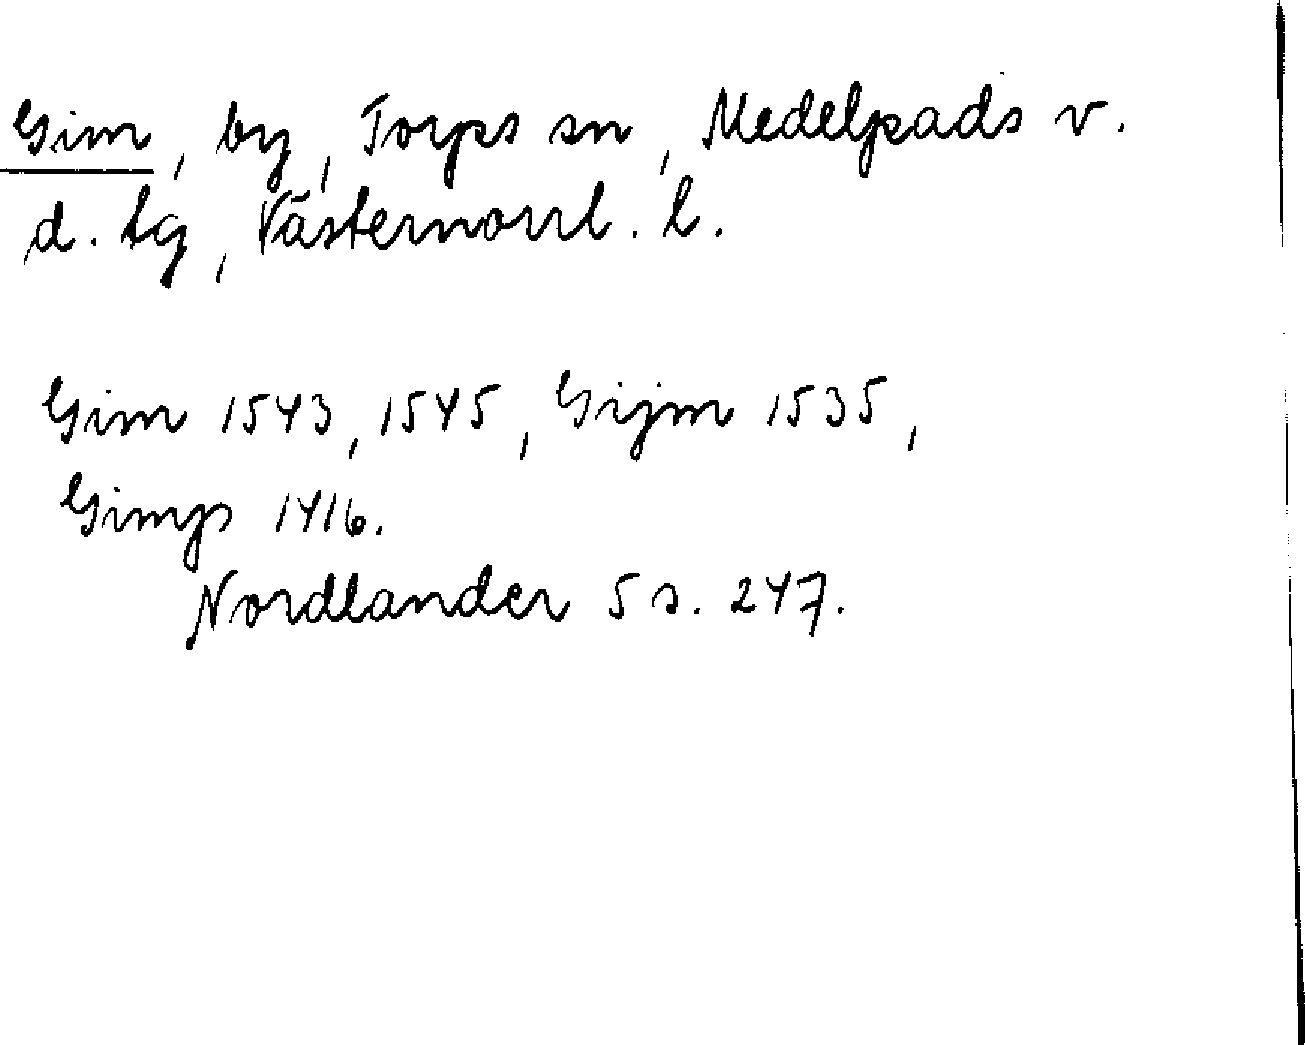 Gim, by, Torps sn, Medelpads v.
d. tg, Västernorrl. l.
Gim 1543, 1545, Gijm 1535,
Gimps 1416.
Nordlander 5 s. 247.